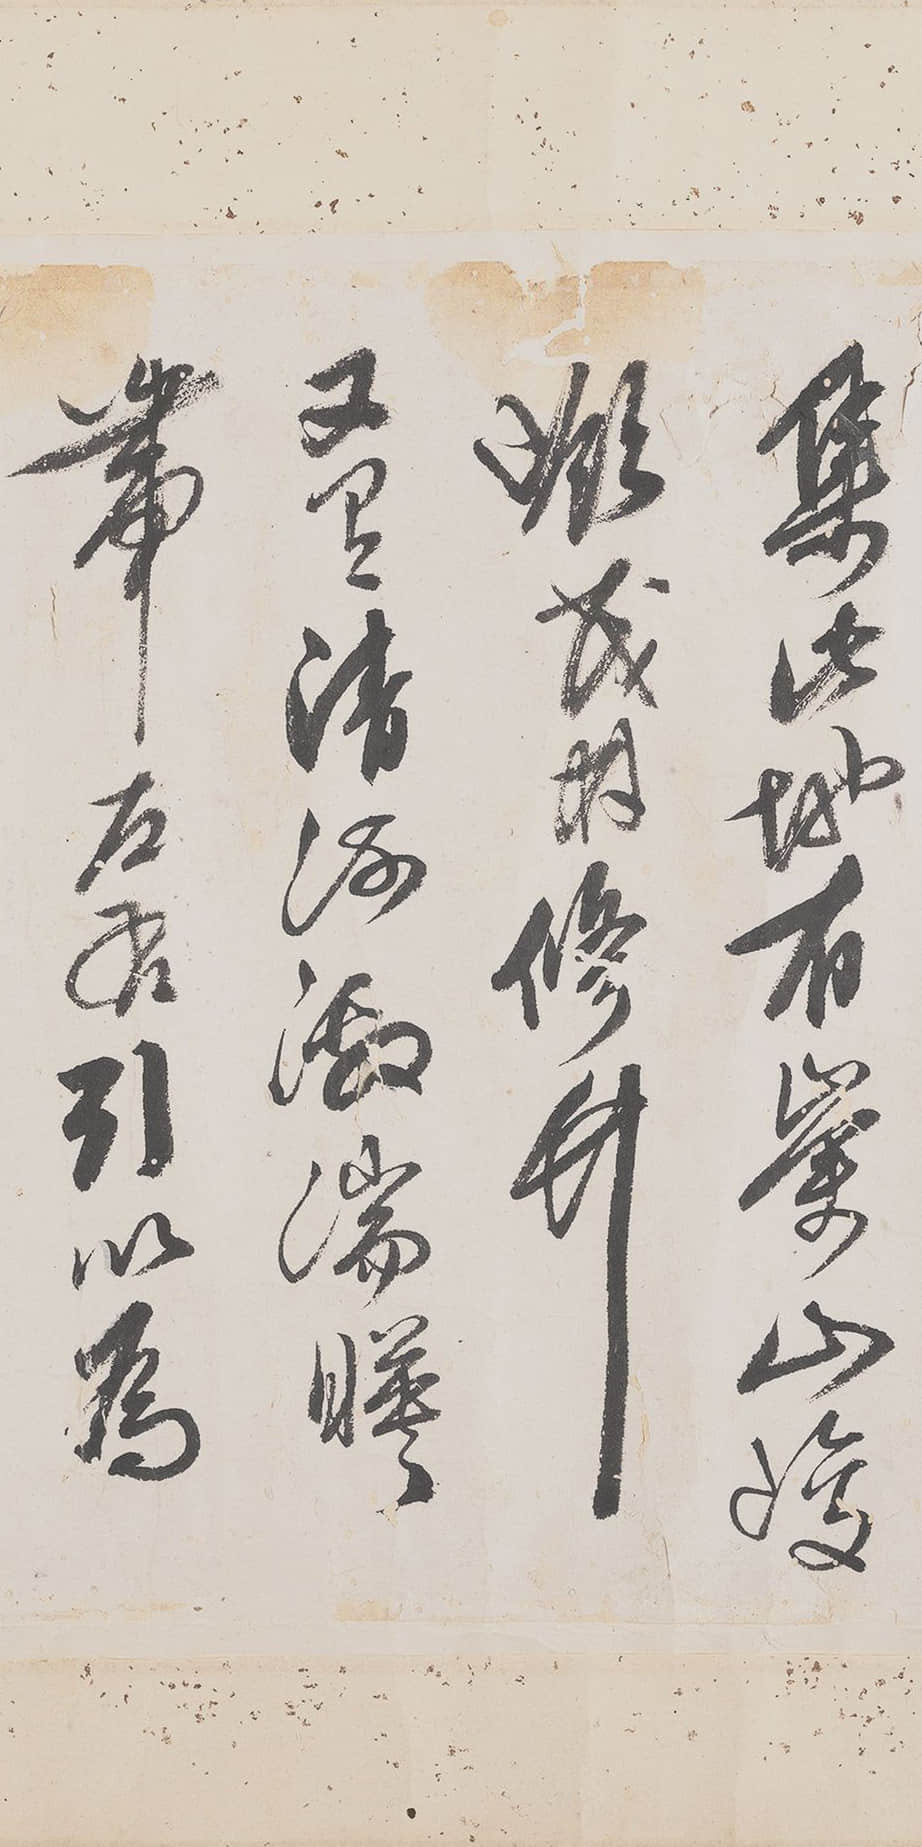 集此地有崇山峻
嶺茂林修竹
又有清流激湍暎
帶左右引以為